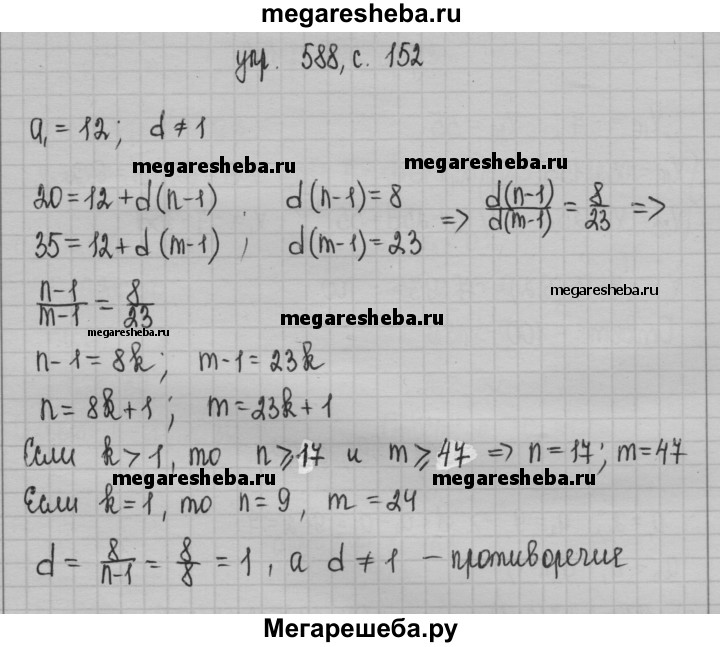 megaresheba.ru
упр. 588, с. 152
a₁ = 12; d ≠ 1
megaresheba.ru megaresheba.ru
20 = 12 + d(n-1), d(n-1) = 8 => d(n-1)/d(m-1) = 8/23 =>
35 = 12 + d(m-1); d(m-1) = 23
n-1/m-1 = 8/23
megaresheba.ru megaresheba.ru megaresheba.ru
n-1 = 8k; m-1 = 23k
n = 8k+1; m = 23k+1
Если k > 1, то n ⩾ 17 и m ⩾ 47 => n = 17; m = 47
megaresheba.ru megaresheba.ru
Если k = 1, то n = 9, m = 24
d = 8/n-1 = 8/8 = 1, а d ≠ 1 – противоречие
Мегарешеба.ру